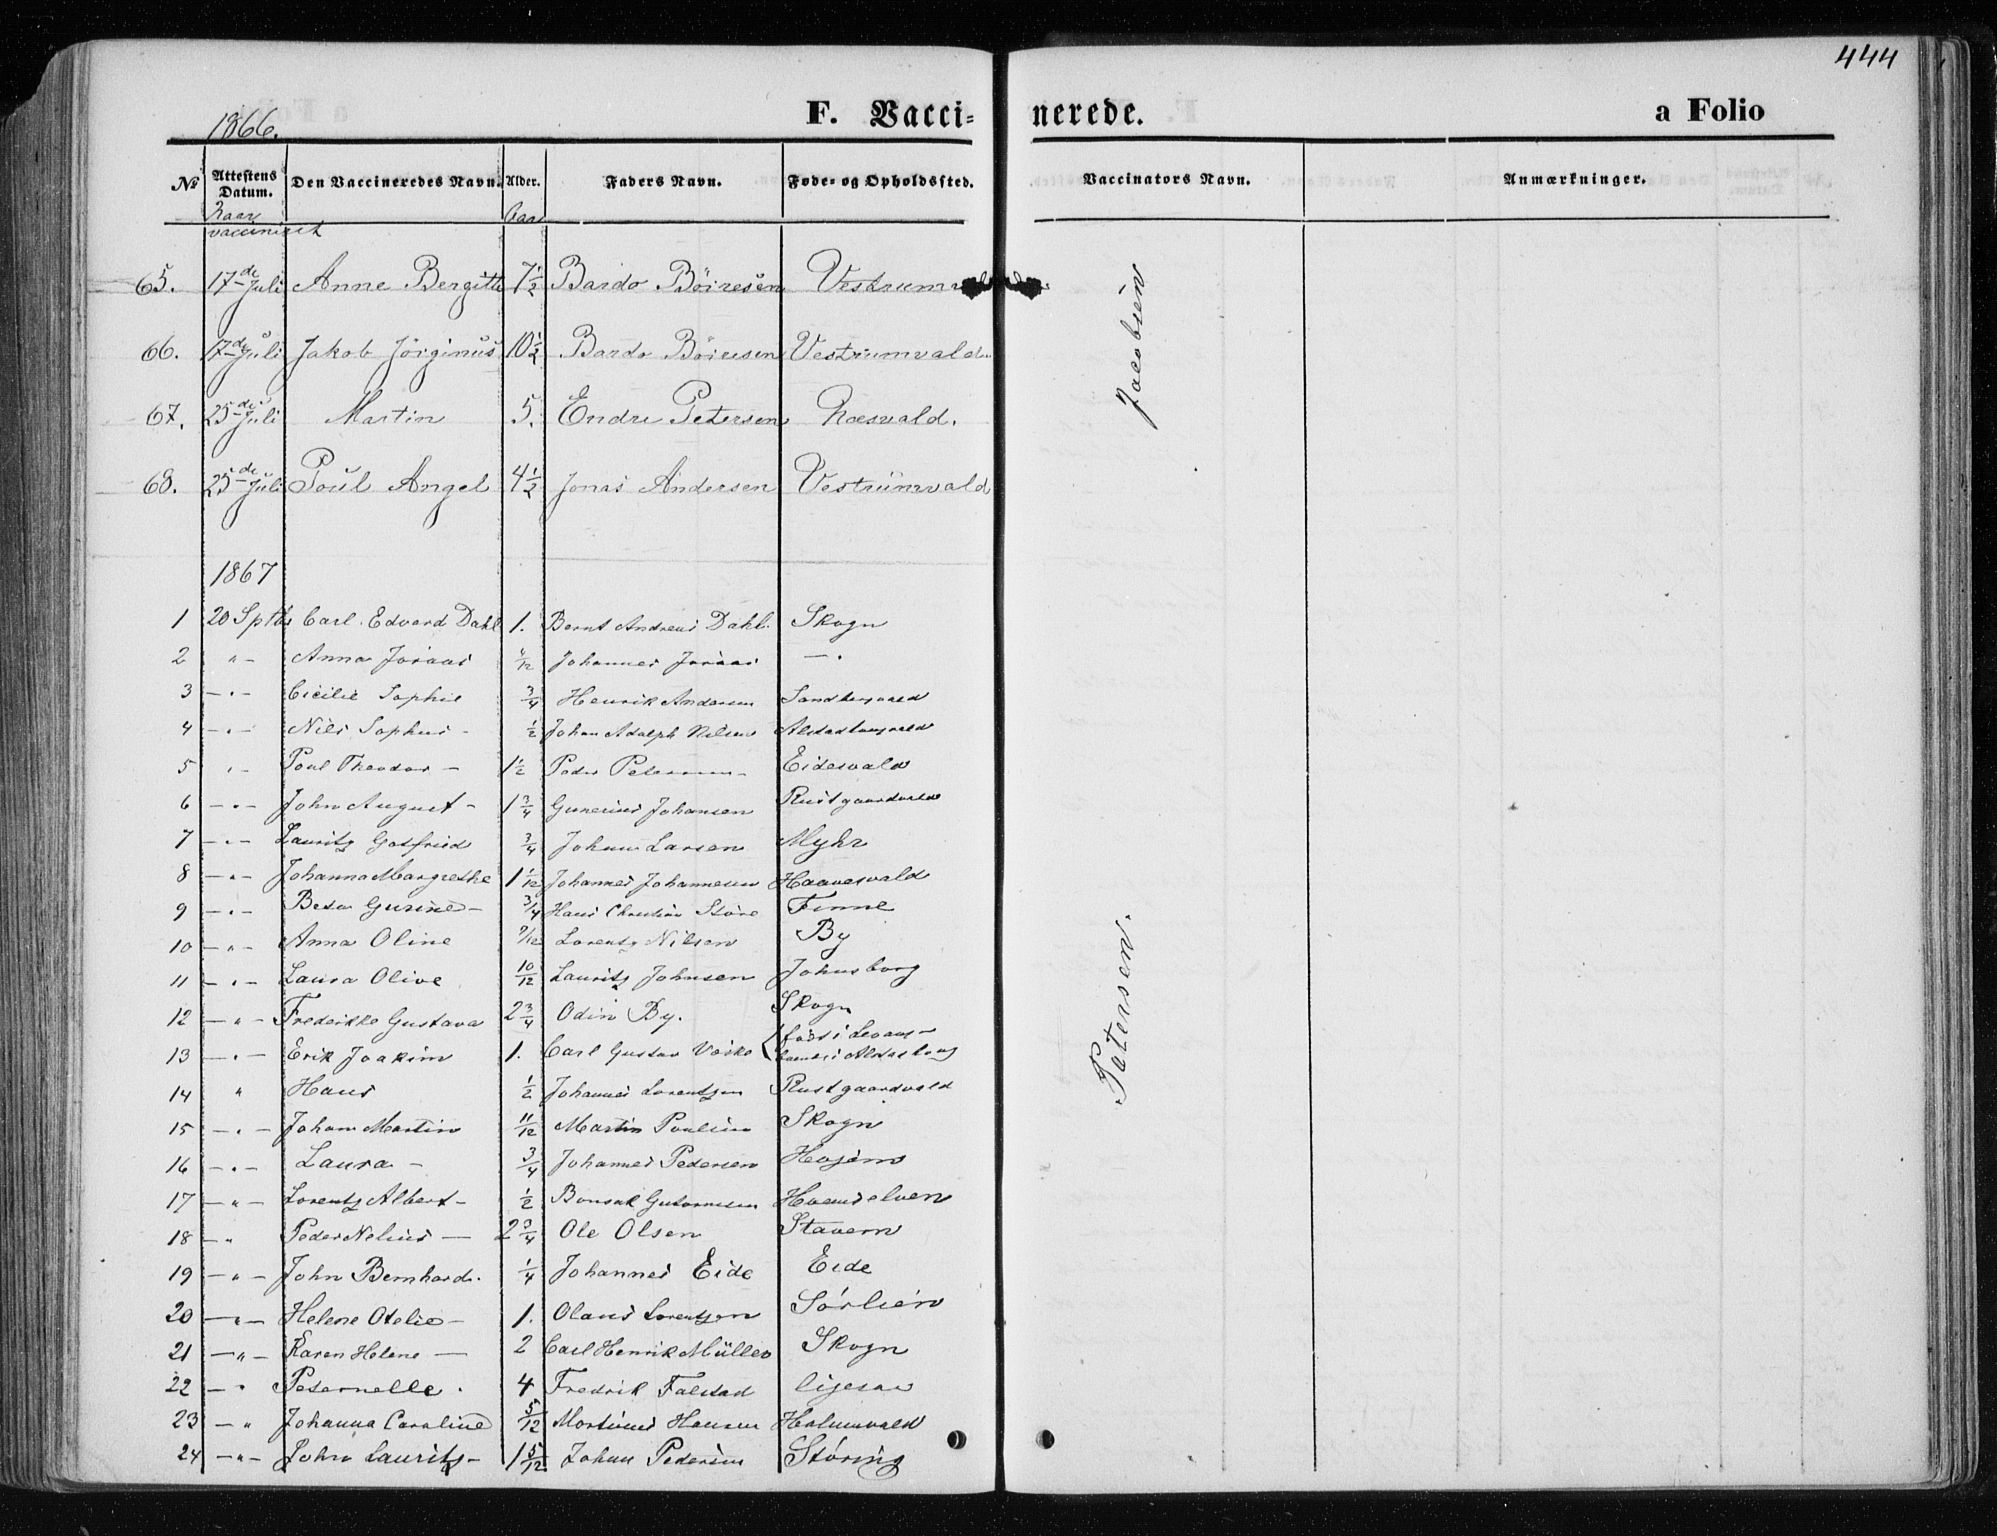 444
F. Vaccinerede. a Folio
1866.
No Attestens Datum. Den Vaccineredes Navn. Alder. Faders Navn. Føde- og Opholdssted. Vaccinators Navn. Anmærkninger.
Naar vaccineret Aar
65. 17de Juli Anne Bergitte 7 1/2 Bardo Böiresen
66. 17de Juli Jakob Jörginus 10 1/2 Bardo Böiresen Vestrumvald Jacobsen
67. 25de Juli Martin 5. Endre Petersen Næsvald.
68. 25de Juli Poul Angel 4 1/2 Jonas Andersen Vestrumvald
1867
1 20 Sptbr Carl Edvard Dahl 1. Bernt Andreas Dahl. Skogn
2 " - Anna Joraas /12 Johannes Joraas — .
3 - " - Cicilie Sophie 3/4 Henrik Andersen
4 - " - Nils Sophus - 1/2 Johan Adolph Nilsen
5 " - Poul Theodor - 1 1/2 Peder Petersen - Eidesvald
6 - " - John August - 1 3/4 Gunerius Johansen Rustgaardvald
7 - " - Lauritz Gotfried 3/4 Johan Larsen Myhr
8 - " - Johanna Margrethe 1 1/12 Johannes Johannesen Haavesvald
9 - " - Beta Gurine - 3/4 Hans Christian Störe Finne
10 - " - Anna Oline 9/12 Lorentz Nilsen By
11 - " - Laura Olive 10/12 Lauritz Johnsen Johnsborg
12 - " - Fredrikke Gustava 2 3/4 Odin By. Skogn
13 - " - Erik Joakim 1. Carl Gustav født i Levang -
Petersen.
14 " Hans 1/2 Johannes Lorentzen Rustgaardvald
15 - " - Johan Martin 11/12 Martin Paulsen Skogn
16 - " - Laura - 3/4 Johannes Pedersen
17 - " - Lorentz Albert - 1/2 Bonsak Guttormsen
18 - " Peder Nelius — 2 3/4 Ole Olsen Stavern
19 - " - John Bernhard. 1/4 Johannes Eide Eide
20 - " - Helene Otelie - 1. Olaus Lorentzen Sörlien
21 - " - Karen Helene — 2 Carl Henrik Müller Skogn
22 - " Peternelle . 4 Fredrik Falstad ligesaa
23 - " Johanna Caroline 5/12 Mortinus Hansen Holmvald
24 - " - John Lauritz - 1 5/12 Johan Pedersen Störing